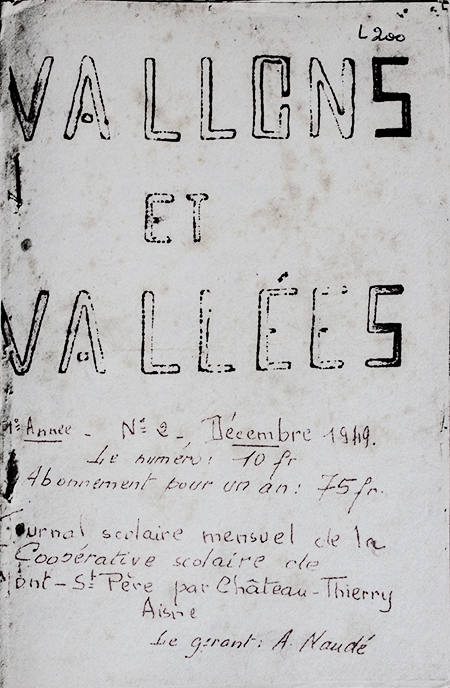 L200
VALLONS
ET
VALLÉES
1e Année - No 2 - Décembre 1949.
Le numéro: 10 fr
Abonnement pour un an: 75 fr.
ournal scolaire mensuel de la
Coopérative scolaire de
ont-St Père par Château-Thierry
Aisne
Le gérant: A. Naudé